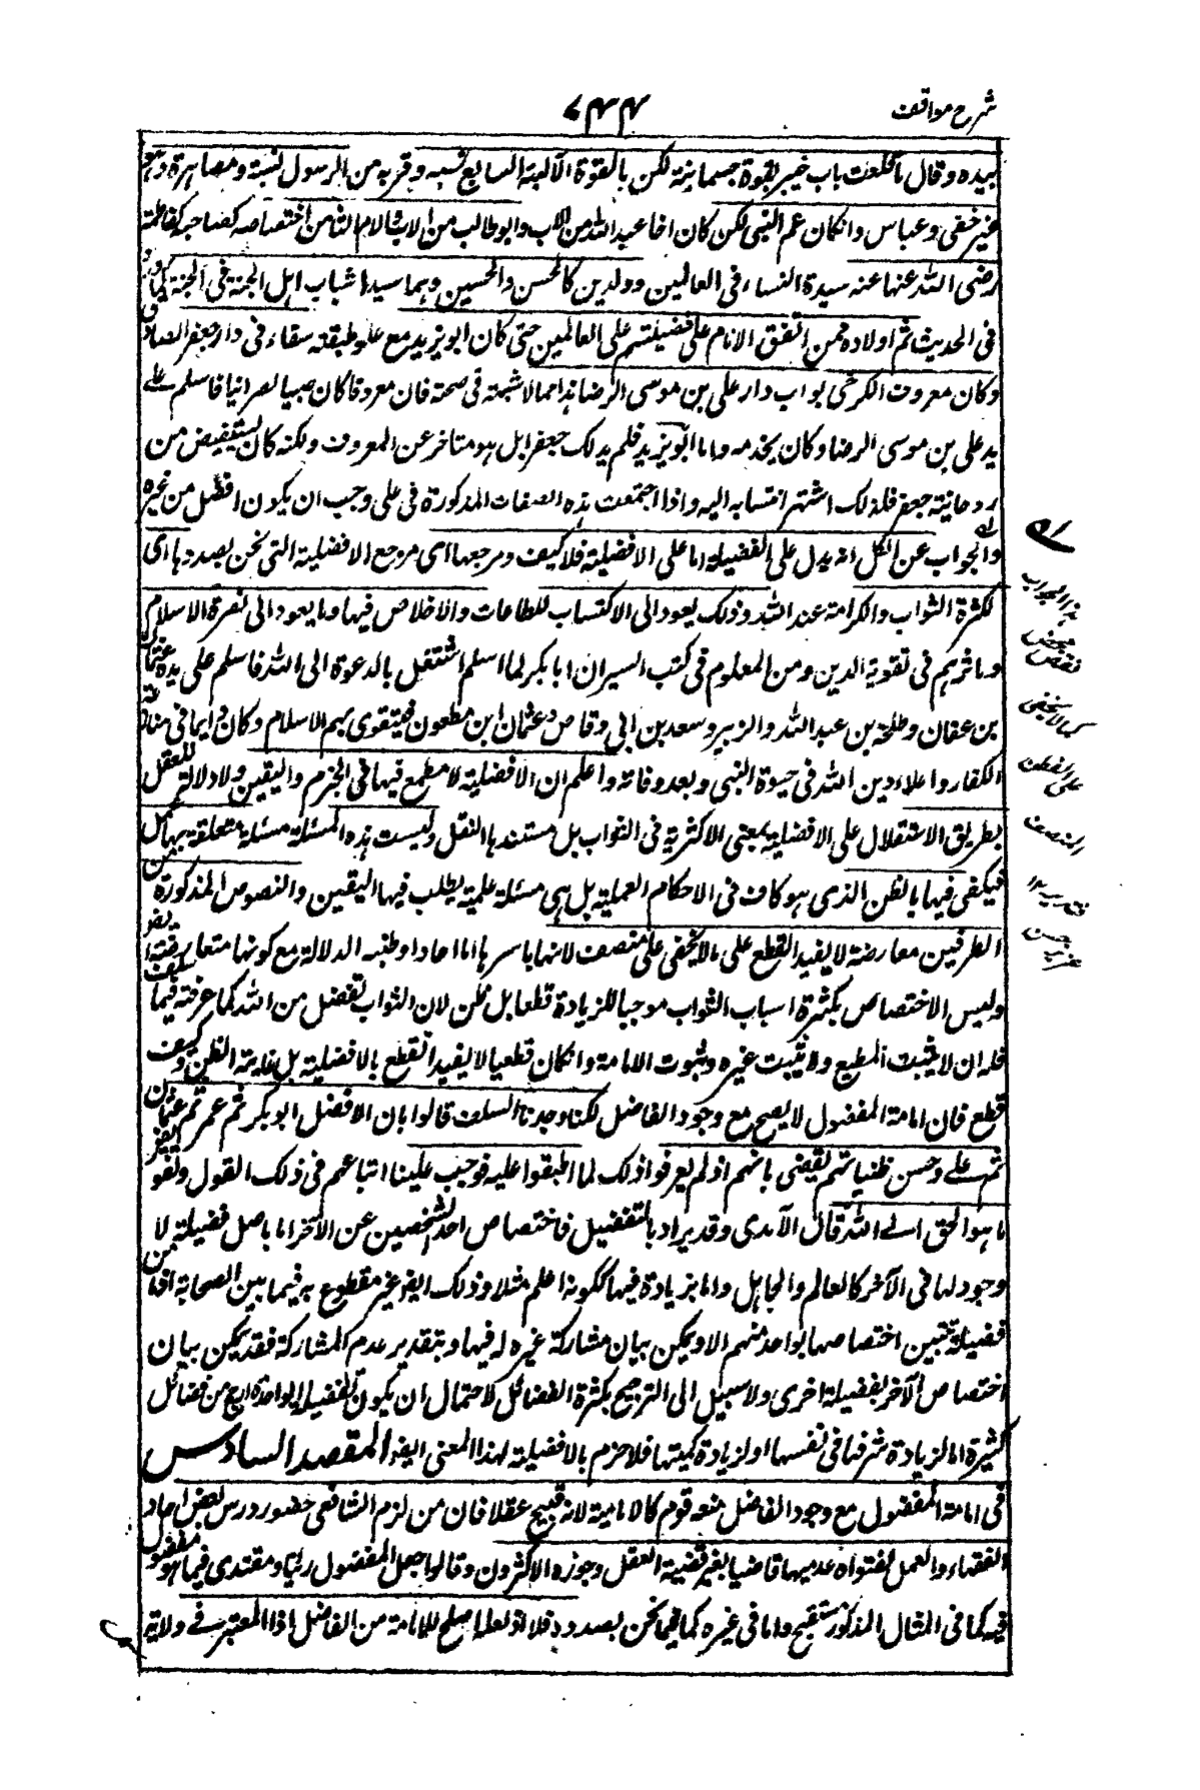 شرح مواقف
۷۴۴
بيده وقال ما قلعت باب خيبر بقوة جسمانية لكن بالقوة الآلهية السابع نسبه وقربه من الرسول نسبة ومصاهرة وهو
غير خفى وعباس وانكان عم النبى لكن كان اخا عبد الله من الاب وابو طالب من الاب والام الثامن اختصاصه بصاحبة كفاطمة
رضى الله عنها عنه سيدة النساء فى العالمين وولدين كالحسن والحسين وهما سيدا شباب اهل الجنة فى الجنة كما ورد
فى الحديث ثم اولاده ممن اتفق الانام على فضيلتهم على العالمين حتى كان ابو يزيد مع علو طبقته سقاء فى دار جعفر الصادق
وكان معروف الكرخى بواب دار على بن موسى الرضا هذا مما لا شبهة فى صحته فان معروفا كان صبيا نصرانيا فاسلم على
يد على بن موسى الرضا وكان يخدمه واما ابو يزيد فلم يدرك جعفرا بل هو متاخر عن المعروف ولكنه كان يستفيض من
روحانية جعفر فلذلك اشتهر انتسابه اليه واذا اجتمعت هذه الصفات المذكورة فى على وجب ان يكون افضل من غيره
والجواب عن الكل انه يدل على الفضيلة اما على الافضلية فلا كيف ومرجعها اى مرجع الافضلية التى نحن بصددها اى
لكثرة الثواب والكرامة عند الله وذلك يعود الى الاكتساب للطاعات والاخلاص فيها وما يعود الى نصرة الاسلام
ومآثرهم فى تقوية الدين ومن المعلوم فى كتب السير ان ابا بكر لما اسلم اشتغل بالدعوة الى الله فاسلم على يده عثمان
بن عفان وطلحة بن عبد الله والزبير وسعد بن ابى وقاص وعثمان ابن مظعون فيتقوى بهم الاسلام وكان دايما فى منازعة
الكفار واعلاء دين الله فى حيوة النبى وبعد وفاته واعلم ان الافضلية لا مطمع فيها فى الجزم واليقين ولا دلالة للعقل
بطريق الاستقلال على الافضلية بمعنى الاكثرية فى الثواب بل مستندها النقل وليست هذه المسئلة مسئلة متعلقة بها عمل
فيكفى فيها بالظن الذى هو كاف فى الاحكام العملية بل هى مسئلة علمية يطلب فيها اليقين والنصوص المذكورة من
الطرفين معارضة لا يفيد القطع على ما لا يخفى على منصف لانها باسرها اما احاد او ظنية الدلالة مع كونها متعارضة ايضا
وليس الاختصاص بكثرة اسباب الثواب موجبا للزيادة قطعا بل ظن لان الثواب تفضل من الله كما عرفته فيما سلف
فله ان لا يثيب المطيع ولا يثيب غيره وثبوت الامامة وانكان قطعيا لا يفيد القطع بالافضلية بل غاية الظن كيف ولا
قطع فان امامة المفضول لا يصح مع وجود الفاضل لكنا وجدنا السلف قالوا بان الافضل ابو بكر ثم عمر ثم عثمان
ثم على وحسن ظننا بهم يقضى بانهم لو لم يعرفوا ذلك لما اطبقوا عليه فوجب علينا اتباعهم فى ذلك القول وتفويض
ما هو الحق الى الله قال الآمدى وقد يراد بالتفضيل فاختصاص احد الشخصين عن الآخر اما باصل فضيلة لا
وجود لها فى الآخر كالعالم والجاهل واما بزيادة فيها ككونه اعلم مثلا وذلك ايضا غير مقطوع به فيما بين الصحابة اذ ما من
فضيلة تبين اختصاصها بواحد منهم الا ويمكن بيان مشاركة غيره له فيها وبتقدير عدم المشاركة فقد يمكن بيان
اختصاص الآخر بفضيلة اخرى ولا سبيل الى الترجيح بكثرة الفضائل لاحتمال ان يكون الفضيلة الواحدة ارجح من فضائل
كثيرة اما لزيادة شرفها فى نفسها او لزيادة كميتها فلا جزم بالافضلية لهذا المعنى ايضا المقصد السادس
فى امامة المفضول مع وجود الفاضل منعه قوم كالامامية لانه قبيح عقلا فان من لزم الشافعى حضور درس بعض احاد
الفقهاء والعمل بفتواه عد سفيها قاضيا بغير قضية العقل وجوزه الاكثرون وقالوا جعل المفضول رئيسا ومقتدى فيما هو مفضول
فيه كما فى المثال المذكور مستقبح واما فى غيره كما فيما نحن بصدده فلا اذ لعله اصلح للامامة من الفاضل اذ المعتبر فى ولاية
هذا الجواب
كما لا يخفى
على الفطن
المنصف